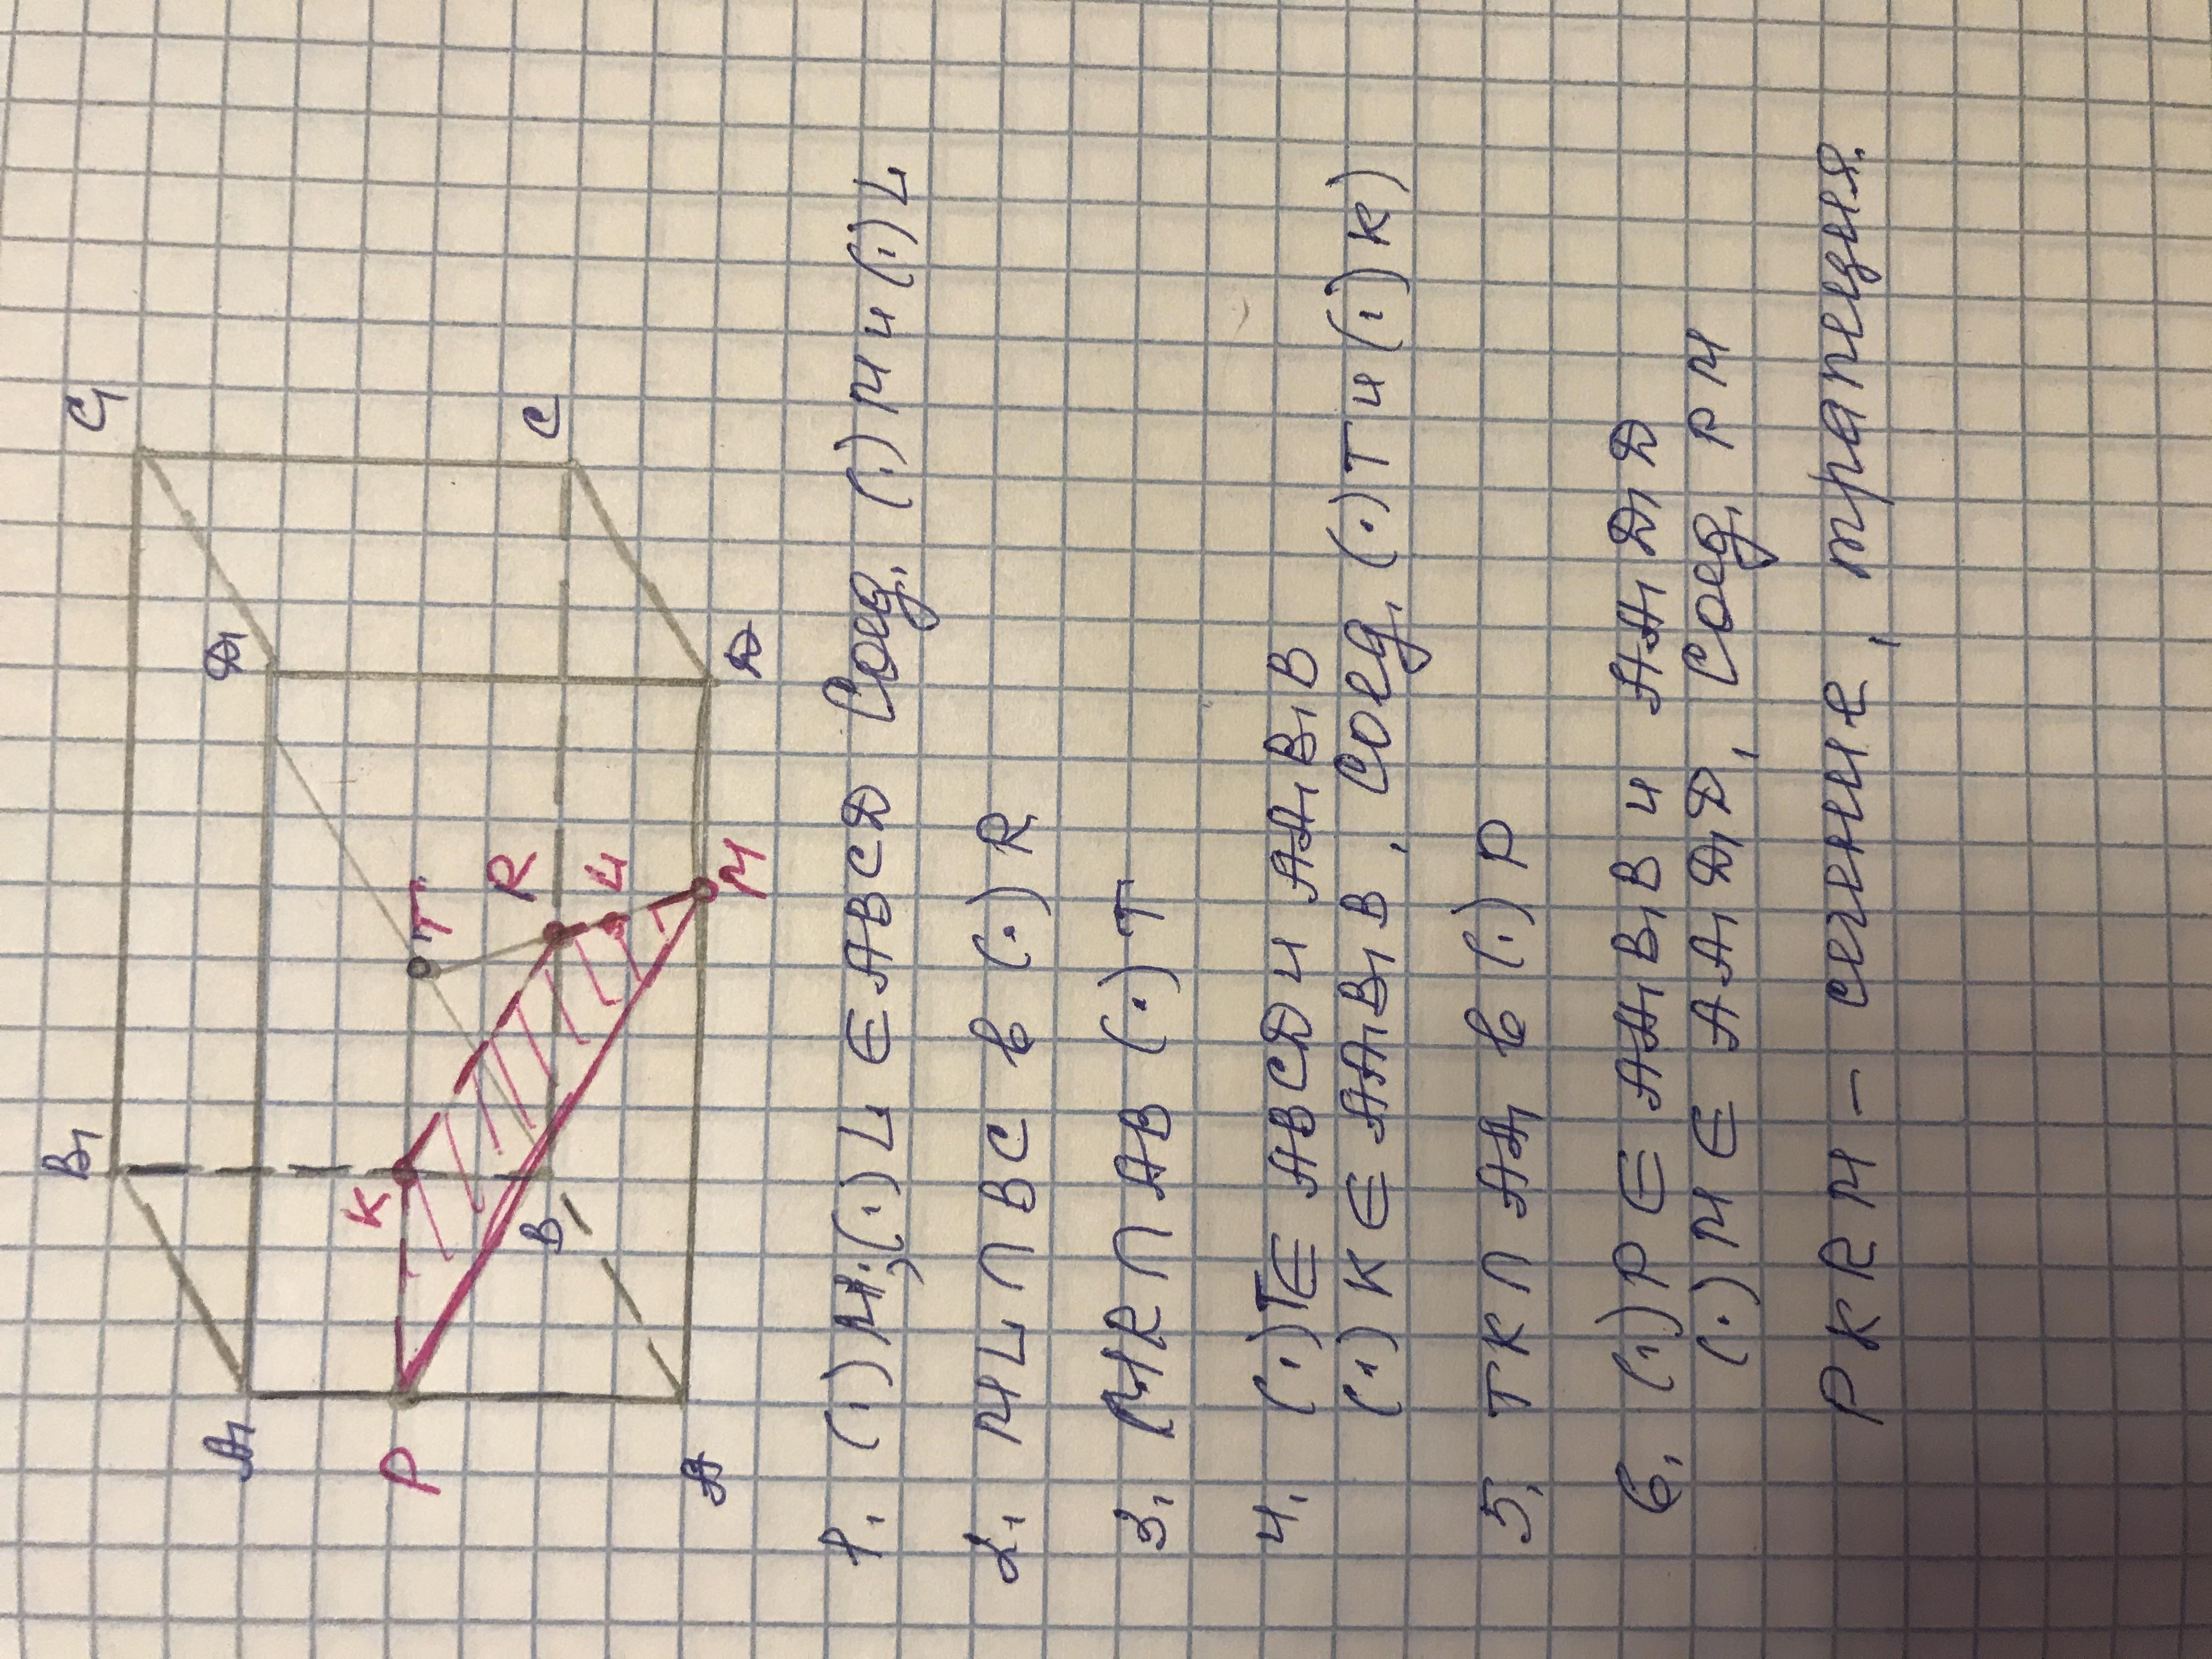 B₁
C₁
A₁
D₁
K
T
R
P
B
L
C
M
A
D
1. (·) M, (·) L ∈ ABCD Соед. (·) M и (·) L
2. ML ∩ BC в (·) R
3. MR ∩ AB (·) T
4. (·) T ∈ ABCD и AA₁B₁B
(·) K ∈ AA₁B₁B, Соед. (·) T и (·) K)
5. TK ∩ AA₁ в (·) P
6. (·) P ∈ AA₁B₁B и AA₁D₁D
(·) M ∈ AA₁D₁D, Соед. PM
PKRM - сечение, трапеция.